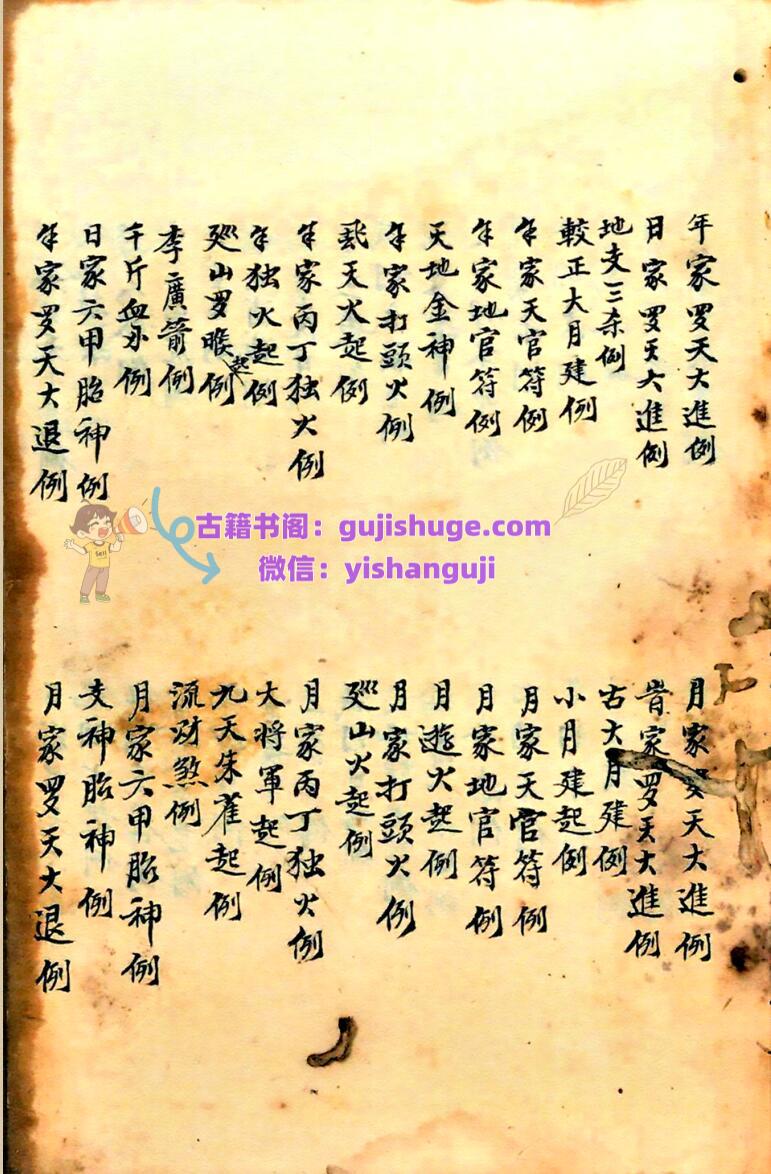 年家罗天大進例
日家罗天大進例
地支三杀例
較正大月建例
年家天官符例
年家地官符例
天地金神例
年家打頭火例
飛天火起例
年家丙丁独火例
年独火起例
廵山罗睺起例
李廣箭例
千斤血刃例
日家六甲胎神例
年家罗天大退例
古籍书阁：gujishuge.com
微信：yishanguji
月家罗天大進例
旹家罗天大進例
古大月建例
小月建起例
月家天官符例
月家地官符例
月遊火起例
月家打頭火例
廵山火起例
月家丙丁独火例
大将軍起例
九天朱雀起例
流财煞例
月家六甲胎神例
支神胎神例
月家罗天大退例